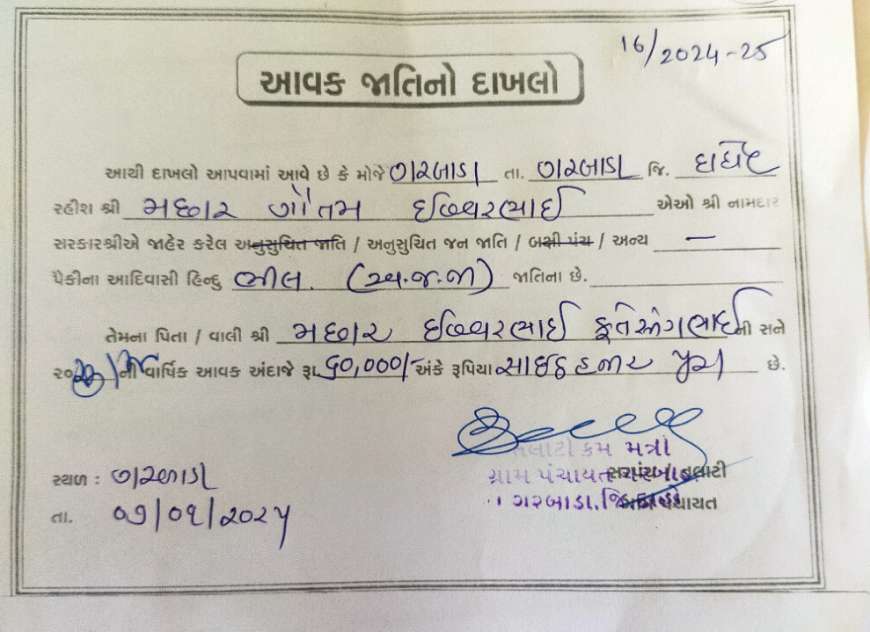 16/2024-25
આવક જાતિનો દાખલો
આથી દાખલો આપવામાં આવે છે કે મોજે ગરબાડા તા. ગરબાડા જિ. દાહોદ
રહીશ શ્રી મછાર ગૌતમ ઈશ્વરભાઈ એઓ શ્રી નામદાર
સરકારશ્રીએ જાહેર કરેલ અનુસુચિત જાતિ / અનુસુચિત જન જાતિ / બક્ષી પંચ / અન્ય —
પૈકીના આદિવાસી હિન્દુ ભીલ. (અ.જ.જા) જાતિના છે.
તેમના પિતા / વાલી શ્રી મછાર ઈશ્વરભાઈ ફતેસીંગભાઈ ની સને
૨૦ ની વાર્ષિક આવક અંદાજે રૂા. ૬૦,૦૦૦/- અંકે રૂપિયા સાઈઠ હજાર પુરા છે.
તલાટી કમ મંત્રી
ગ્રામ પંચાયત સરપંચ / તલાટી
સ્થળ : ગરબાડા
ગરબાડા, જિ. પંચાયત
તા. ૦૭/૦૧/૨૦૨૫